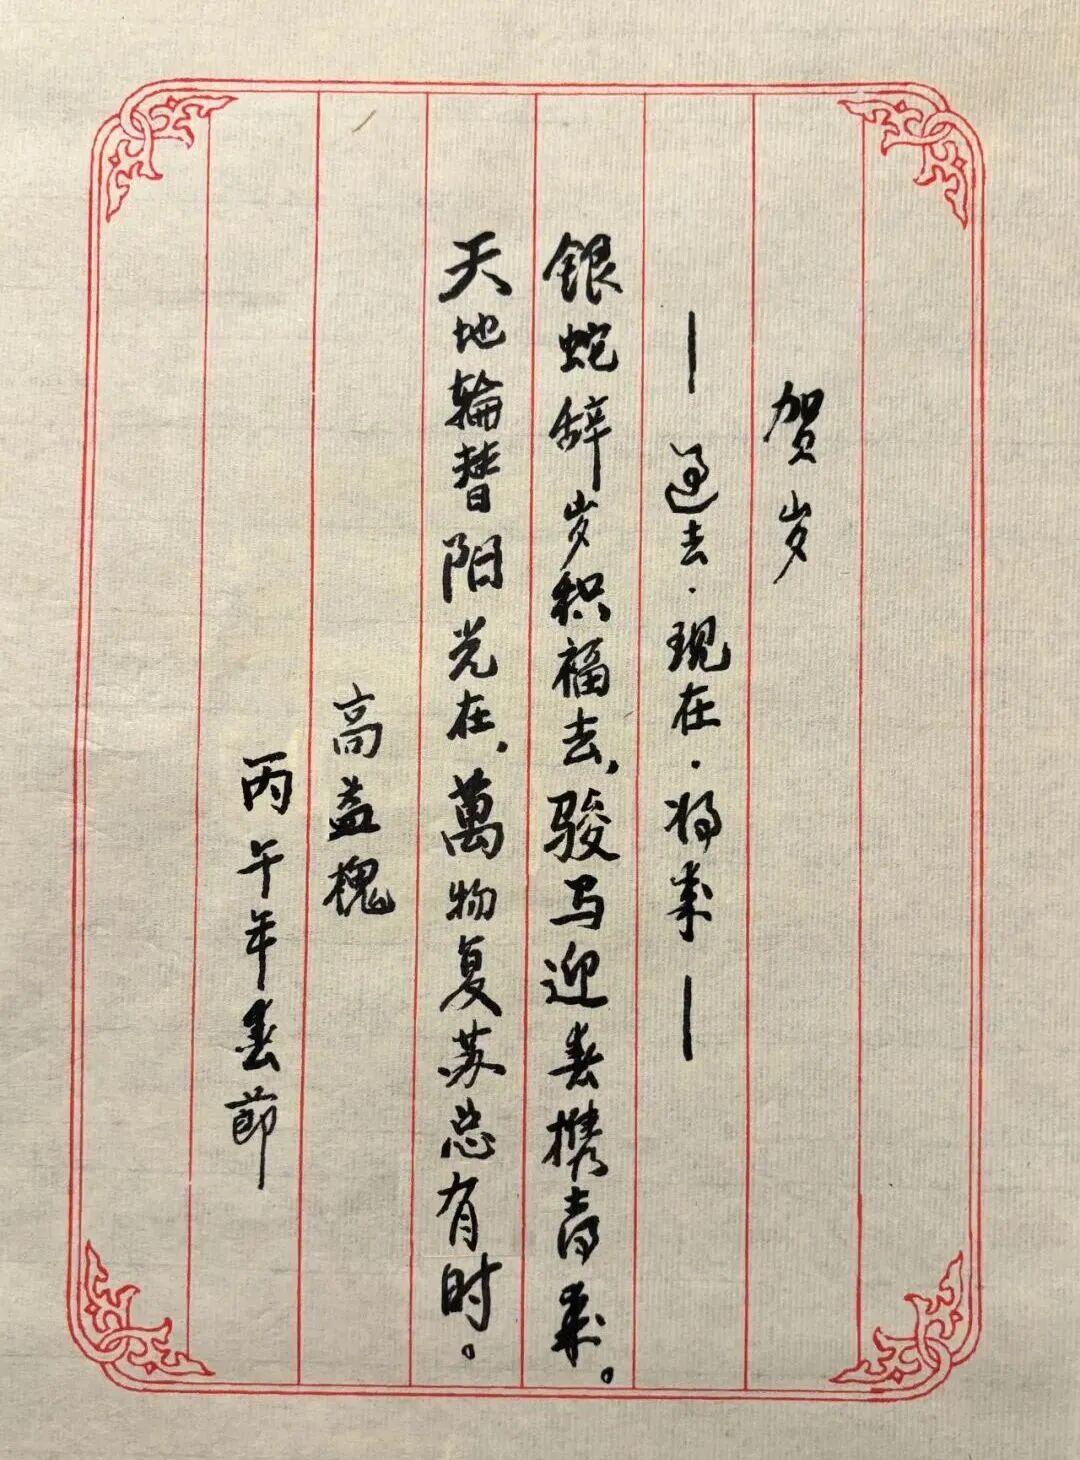 贺岁
—过去·现在·将来—
银蛇辞岁积福去，骏马迎春携喜来。
天地轮替阳光在，萬物复苏总有时。
高益槐
丙午年春節